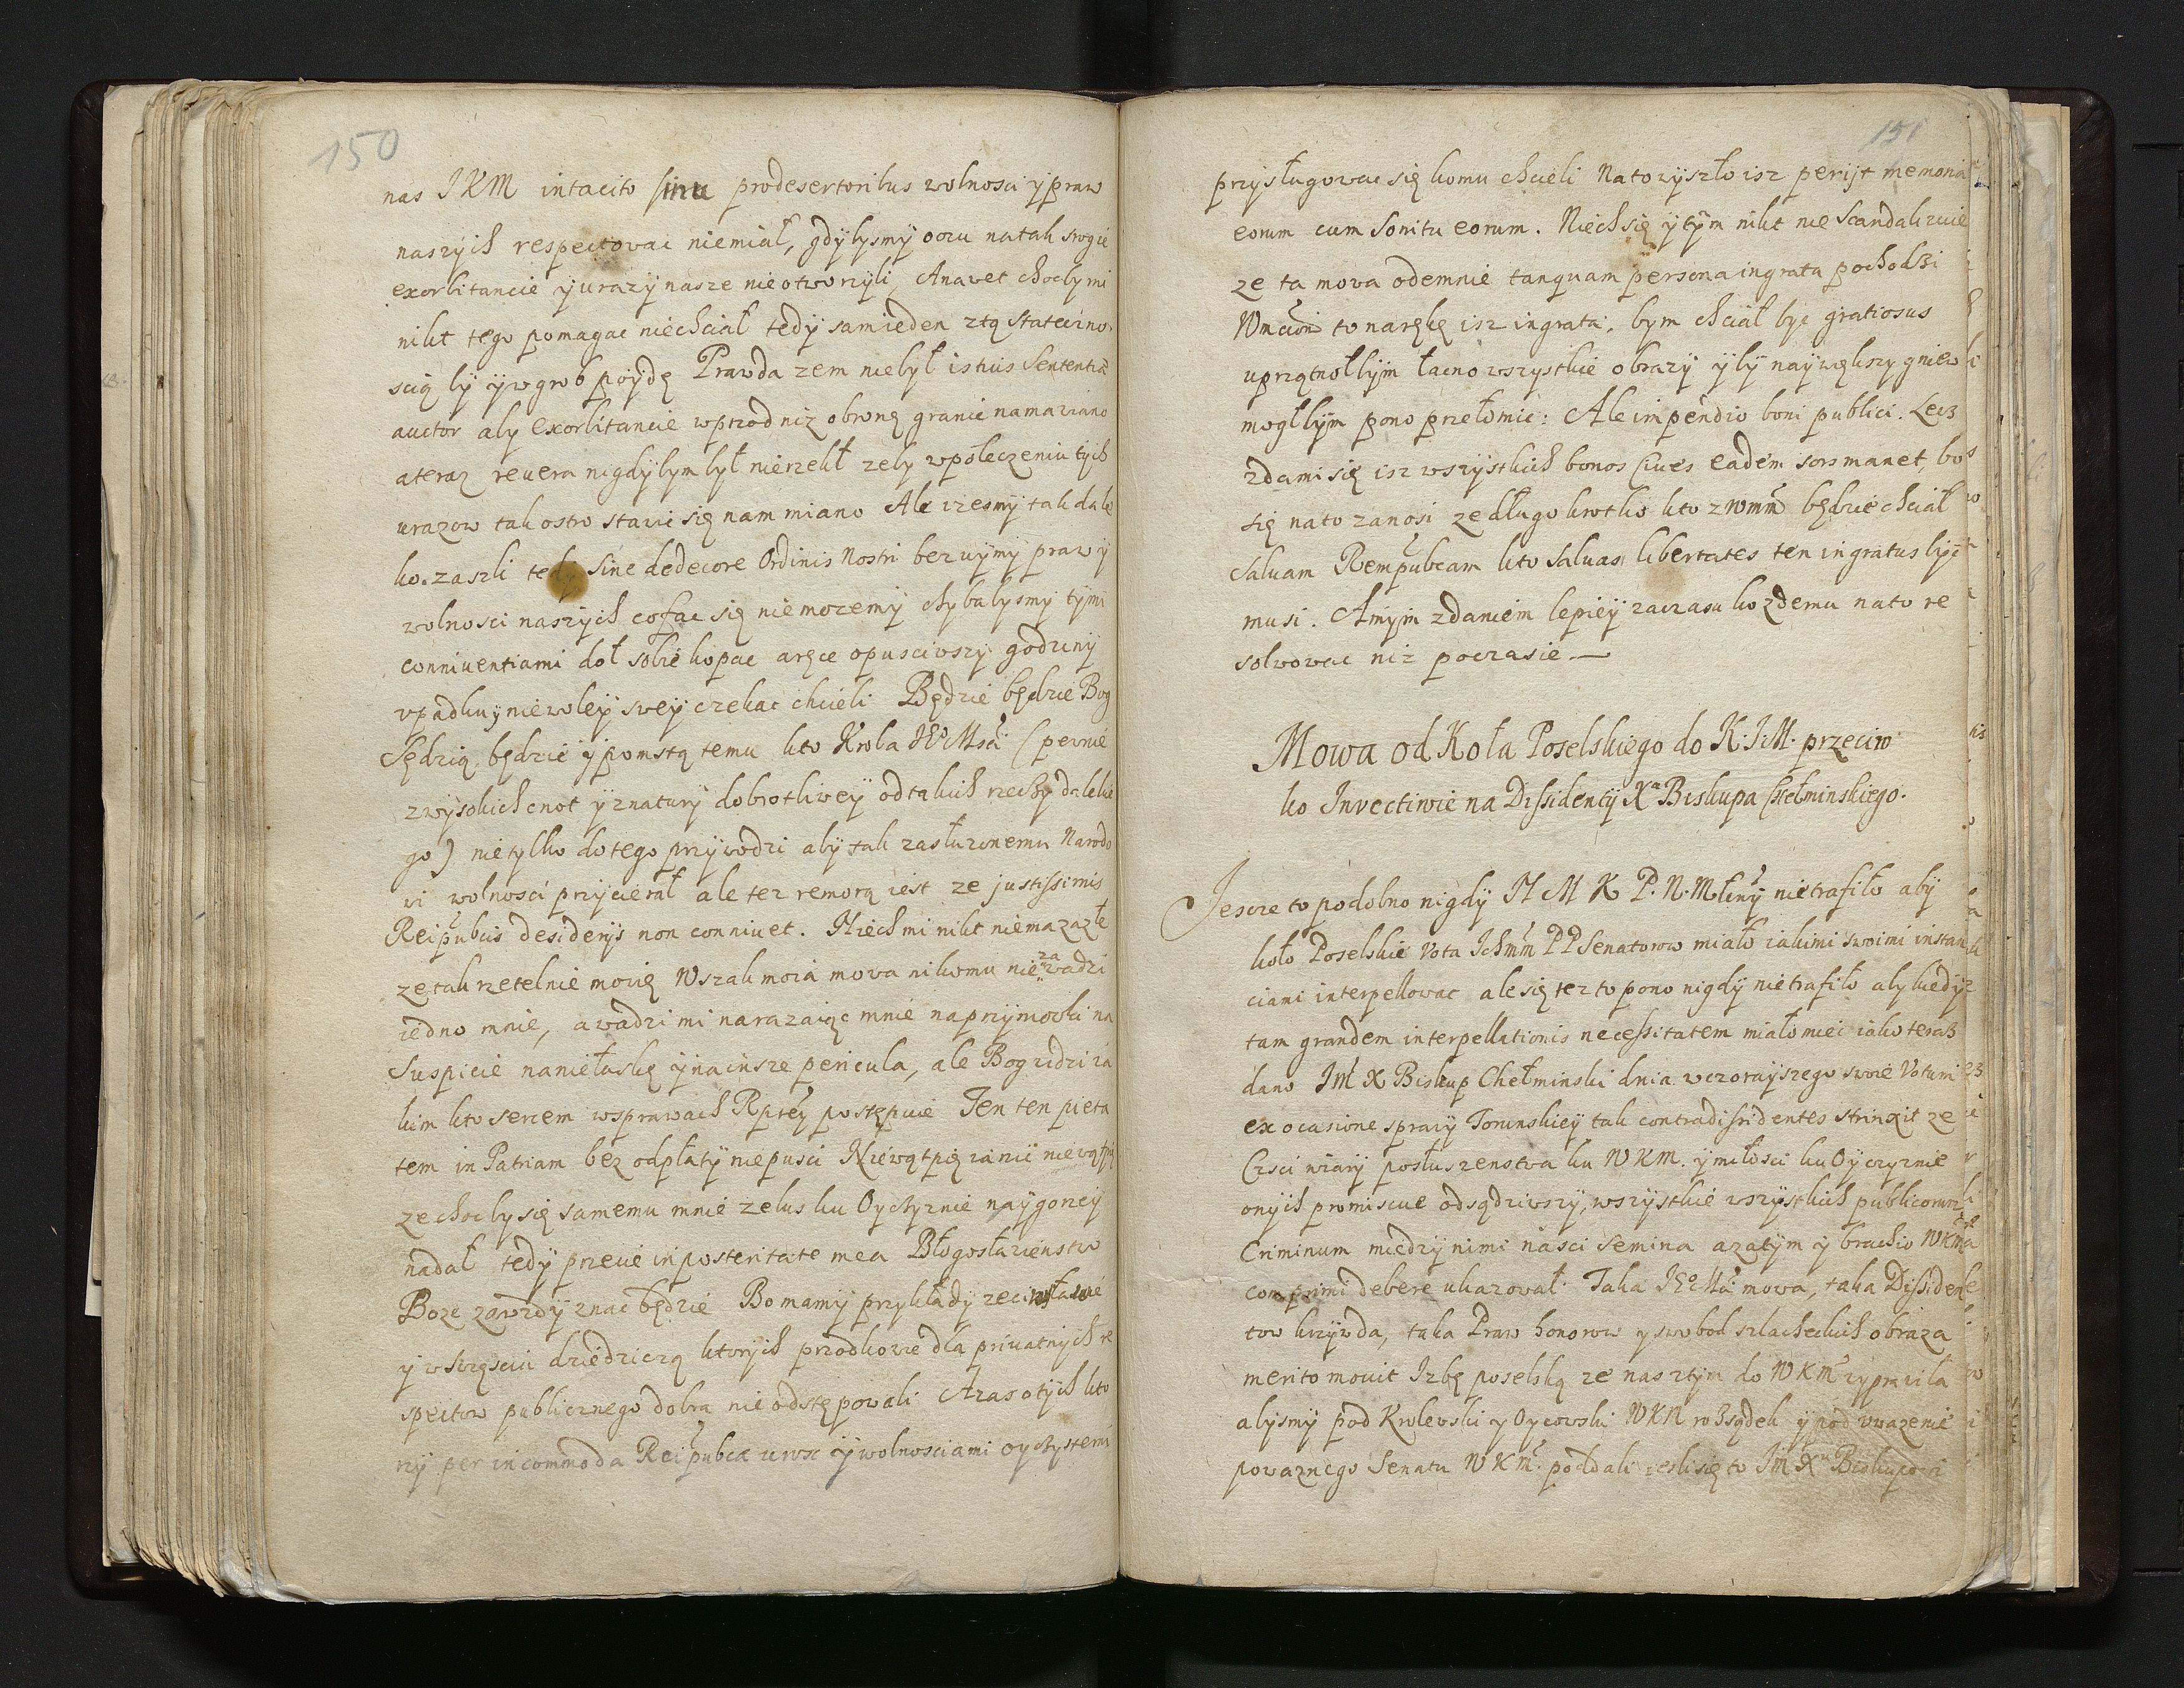 150
nas JKM intacito sinu prodesertoribus wolnosci y praw
naszych respectovac niemiał, gdybysmy oczu natak srogie
exorbitancie y urazy nasze nieotworzyli, Anavet choćby mi
nikt tego pomagac niechciał tedy samieden ztą statecżno
scią by y w grob poydę Prawda zem niebył istius Sententiæ
auctor aby exorbitancie wprzod niz obronę granic namawiano
ateraz revera nigdybym był nierzekł zeby wpołeczeniu tych
urazow tak ostro stawic się nam miano Ale izesmy tak dale
ko. zaszli tedy sine dedecore Ordinis Nostri bez uymy praw y
wolnosci naszych cofac się niemozemy chybabysmy tymi
conniventiami doł sobie kopac a ręce opusciwszy godziny
upadku y niewoley swey czekac chcieli Będzie będzie Bog
Sędzią będzie y pomstą temu kto Krola JEo Msci (pewnie
zwysokich cnot y znatury dobrotliwey odtakich rzeczy dalekie
go) nietylko dotego przywodzi aby tak zasłuzonemu Narodo
wi wolnosci przycierał ale tez remorą iest ze justissimis
Reipubcis desiderijs non connivet. Niech mi nikt niema zazłe
zetak rzetelnie mowię Wszak moia mova nikomu nie zawadzi
iedno mnie, a wadzi mi narazaiąc mnie na przymowki na
Suspicie naniełaskę y na insze pericula, ale Bog widzi ia
kim kto sercem wsprawach Rptey postępuie Ten ten pieta
tem in Patriam bez odpłaty niepusci Niewątpię ia nic niewątpię
ze chocby się samemu mnie zelus ku Oyczyznie naygorzey
nadał tedy przecie in posteritate mea Błogosławienstwo
Boze zawzdy znac będzie Bo mamy przykłady ze ci wsławie
y wszęsciu dziedziczą ktorych przodkowie dla privatnych re
spectow publicznego dobra nie odstępowali Azas otych kto
rzy per incommoda Reipubcæ urosc y wolnosciami oyczystemi
151
przysługowac się komu chcieli Nato wyszło isz perijt memoria
eorum cum Sonitu eorum. Niech się y tym nikt nie Scandalizuie
ze ta mova odemnie tanquam persona ingrata pochodzi
Wmciom to naręką isz ingrata. bym chciał byc gratiosus
uprzątnołbym łacno wszystkie obrazy y by naywększy gniew
mogłbym pono przełomic: Ale inpendio boni publici. Lecz
zda mi się isz wszystkich bonos Cives eadem sors manet, bo
się nato zanosi ze długo krotko kto zWmm będzie chciał
salvam Rempubcam kto salvas libertates ten ingratus byc
musi. A mym zdaniem lepiey zaczasu kozdemu nato re
solvowac niz poczasie.—
Mowa od Koła Poselskiego do K:J:M: przeciw
ko Invectiwie na Dissidenty Xa Biskupa Chełminskiego.
Jescze to podobno nigdy N M K P. N. Młciwy nietrafiło aby
koło Poselskie Vota Ichmm PP Senatorow miało iakimi swoimi instan
ciami interpellowac ale się tez to pono nigdy nietrafiło aby kiedy
tam grandem interpellationis necessitatem miało miec iako teraz
dano Jm X Biskup Chełminski dnia wczorayszego swoie Votum
ex ocasione sprawy Torunskiey tak contra dissidentes strinxit ze
Czsci wiary posłuszenstwa ku WKM. y miłosci ku Oyczyznie
onych promiscue odsądziwszy, wszystkie wszystkich publicorum
Criminum miedzy nimi nasci semina azatym y brachio WKm
comprimi debere ukazował. Taka JEo Ma mowa, taka Dissiden
tow krzywda, taka Praw honorow y swobod szlacheckich obraza
merito movit Izbę poselską ze nas ztym do WKm wyprawiła
abysmy pod Krolewski y Oycowski WKM rozsądek y pod uwazenie
powaznego Senatu WKm. poddali iesli się to Jm Xu Biskupowi